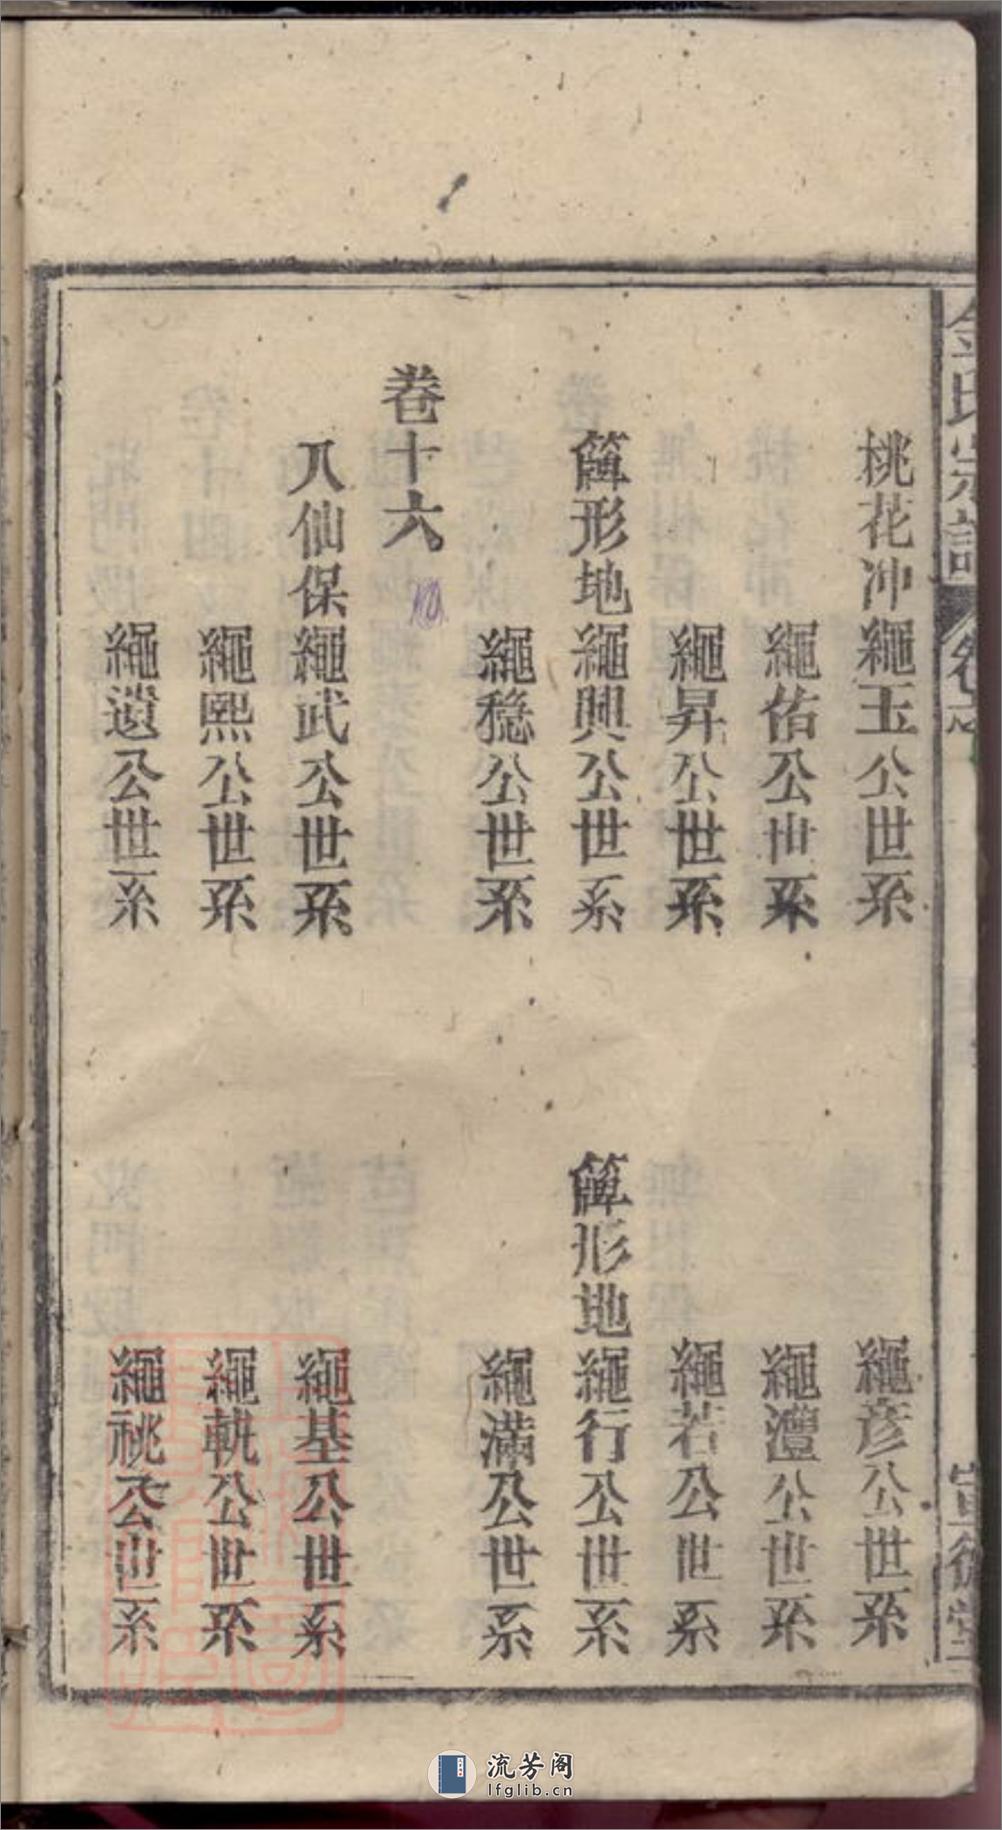 金氏宗譜
宣德堂
桃花冲繩玉公世系
繩彥公世系
繩佑公世系
繩灃公世系
繩昇公世系
繩若公世系
篺形地繩興公世系
篺形地繩行公世系
繩稳公世系
繩滿公世系
卷十六
八仙保繩武公世系
繩基公世系
繩熙公世系
繩軏公世系
繩遺公世系
繩祧公世系
流芳阁
lfglib.cn